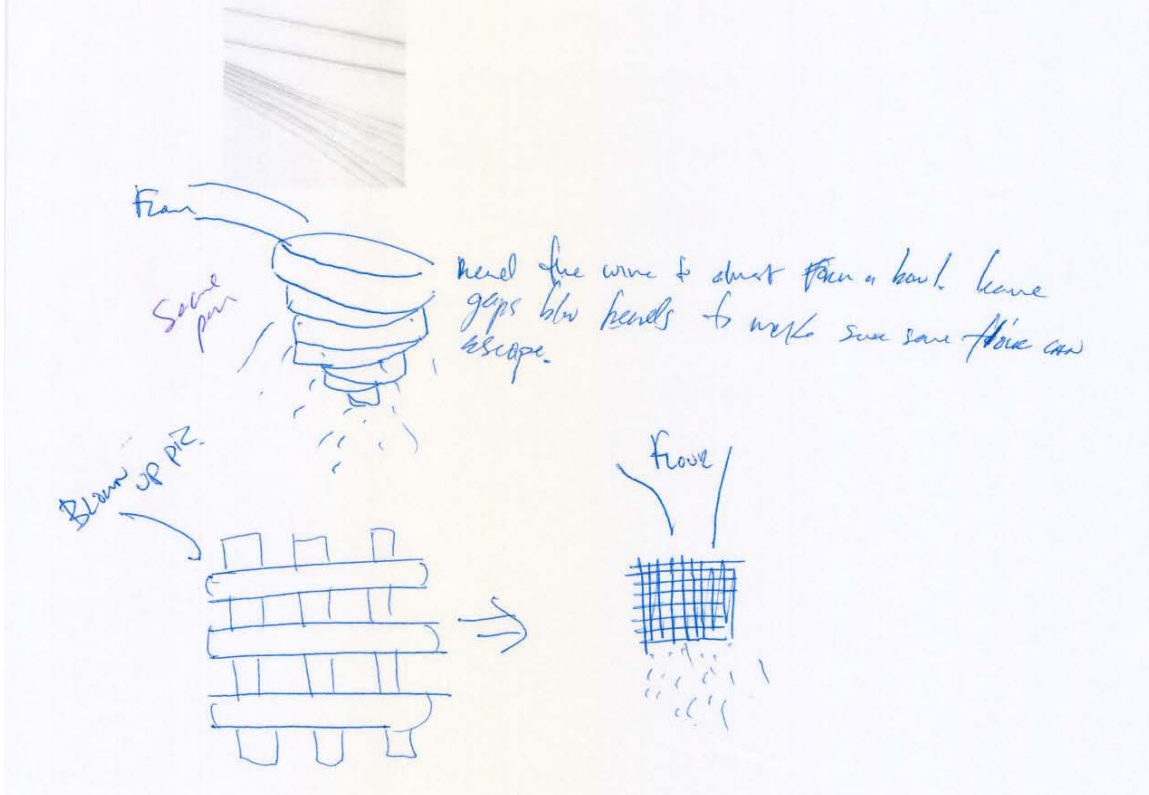 Bend the wire to almost form a bowl. leave
gaps b/w bends to make sure some flour can
escape.
Blown
up pic.
Flour